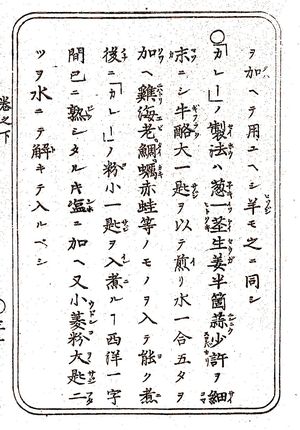 ヲ加ヘテ用ユヘシ羊モ之ニ同シ
○「カレー」ノ製法ハ葱一茎生姜半箇蒜少許ヲ細
末ニシ牛酪大一匙ヲ以テ煎リ水一合五タヲ
加ヘ雞海老鯛蠣赤蛙等ノモノヲ入テ能ク煮
後ニ「カレー」ノ粉小一匙ヲ入煮ルヿ西洋一字
間已ニ熟シタルキ塩ニ加ヘ又小麦粉大匙二
ツヲ水ニテ解キテ入ルベシ
巻之下